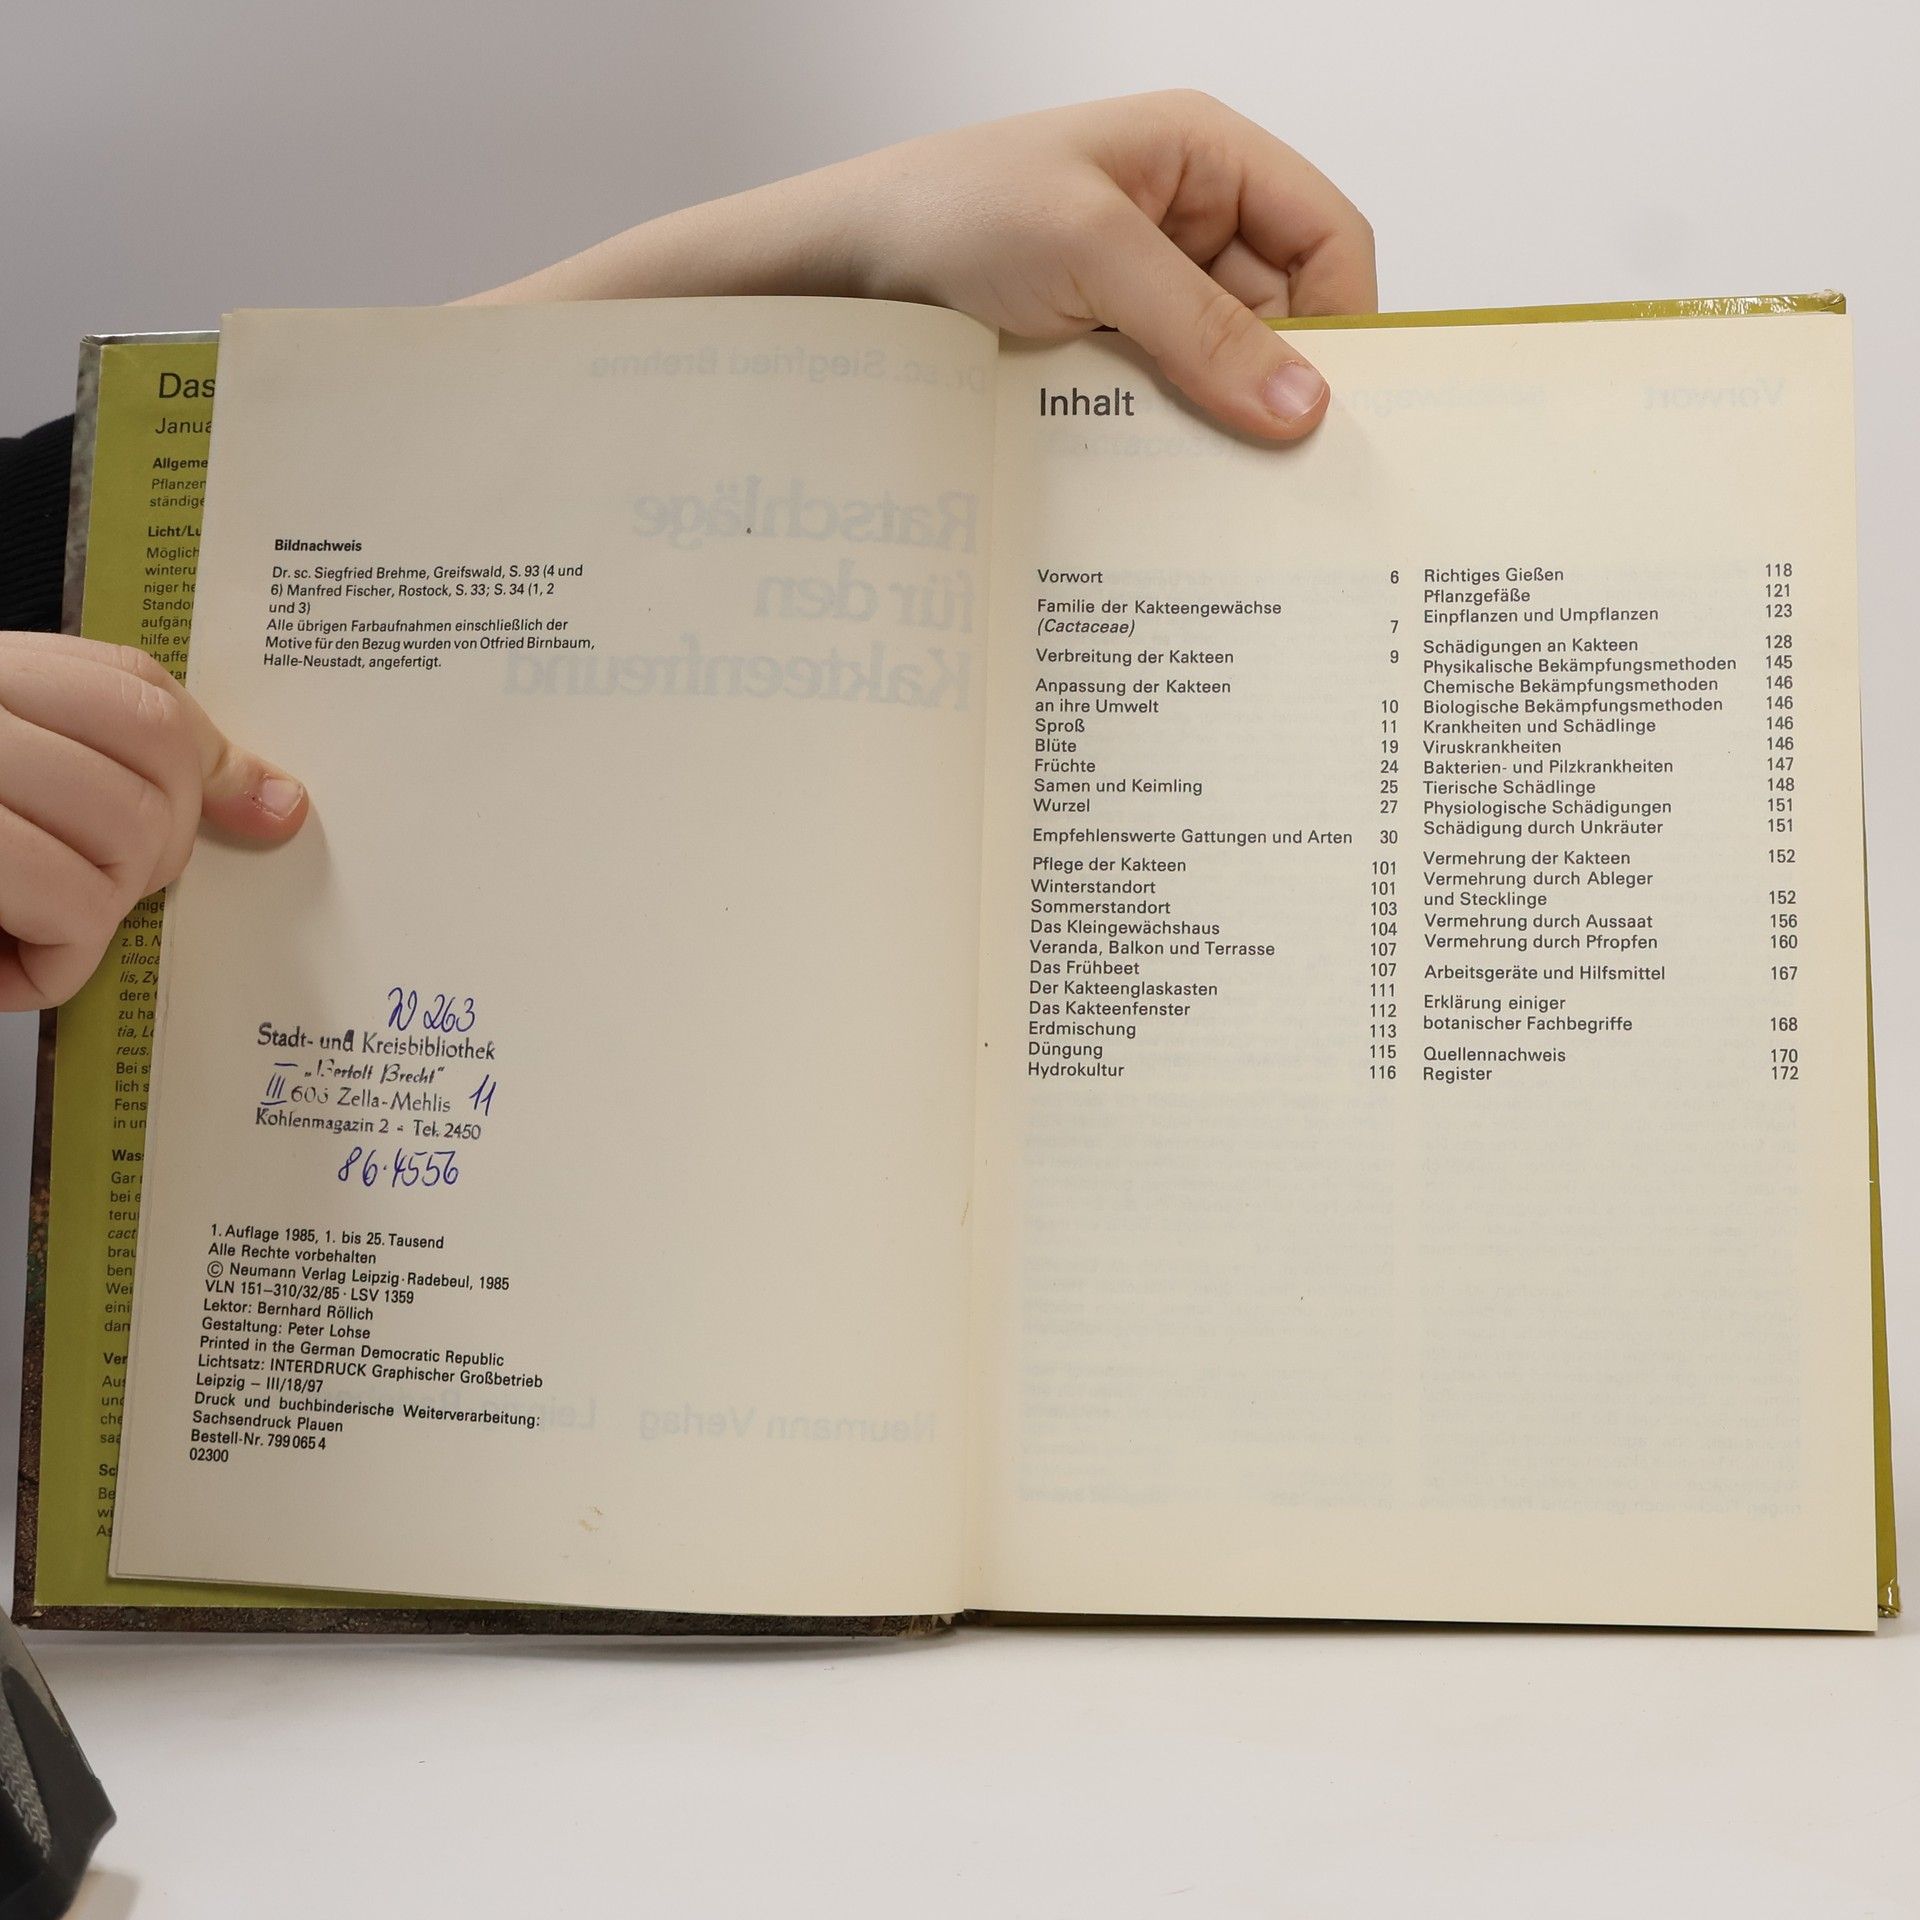 Das
Janua
Allgeme
Pflanzen
ständige
Licht/Lu
Möglich
winteru
niger he
Standor
aufgäng
hilfe ev
höher
z. B. N
tilloca
lis, Zy
dere
zu ha
tia, Lo
reus.
Bei s
lich s
Fens
in un
Was
Gar
bei e
teru
cact
brau
ben
Wei
eini
dan
Ver
Aus
und
che
saa
Sc
Be
wi
As
Dr. sc. Siegfried Brehme
Ratschläge
für den
Kakteenfreund
Neumann Verlag Leipzig
Bildnachweis
Dr. sc. Siegfried Brehme, Greifswald, S. 93 (4 und
6) Manfred Fischer, Rostock, S. 33; S. 34 (1, 2
und 3)
Alle übrigen Farbaufnahmen einschließlich der
Motive für den Bezug wurden von Otfried Birnbaum,
Halle-Neustadt, angefertigt.
263
Stadt- und Kreisbibliothek
„Bertolt Brecht"
III 606 Zella-Mehlis 11
Kohlenmagazin 2 - Tel. 2450
86·4556
1. Auflage 1985, 1. bis 25. Tausend
Alle Rechte vorbehalten
© Neumann Verlag Leipzig · Radebeul, 1985
VLN 151–310/32/85 · LSV 1359
Lektor: Bernhard Röllich
Gestaltung: Peter Lohse
Printed in the German Democratic Republic
Lichtsatz: INTERDRUCK Graphischer Großbetrieb
Leipzig – III/18/97
Druck und buchbinderische Weiterverarbeitung:
Sachsendruck Plauen
Bestell-Nr. 799 065 4
02300
Inhalt
Vorwort 6
Familie der Kakteengewächse
(Cactaceae) 7
Verbreitung der Kakteen 9
Anpassung der Kakteen
an ihre Umwelt 10
Sproß 11
Blüte 19
Früchte 24
Samen und Keimling 25
Wurzel 27
Empfehlenswerte Gattungen und Arten 30
Pflege der Kakteen 101
Winterstandort 101
Sommerstandort 103
Das Kleingewächshaus 104
Veranda, Balkon und Terrasse 107
Das Frühbeet 107
Der Kakteenglaskasten 111
Das Kakteenfenster 112
Erdmischung 113
Düngung 115
Hydrokultur 116
Richtiges Gießen 118
Pflanzgefäße 121
Einpflanzen und Umpflanzen 123
Schädigungen an Kakteen 128
Physikalische Bekämpfungsmethoden 145
Chemische Bekämpfungsmethoden 146
Biologische Bekämpfungsmethoden 146
Krankheiten und Schädlinge 146
Viruskrankheiten 146
Bakterien- und Pilzkrankheiten 147
Tierische Schädlinge 148
Physiologische Schädigungen 151
Schädigung durch Unkräuter 151
Vermehrung der Kakteen 152
Vermehrung durch Ableger
und Stecklinge 152
Vermehrung durch Aussaat 156
Vermehrung durch Pfropfen 160
Arbeitsgeräte und Hilfsmittel 167
Erklärung einiger
botanischer Fachbegriffe 168
Quellennachweis 170
Register 172